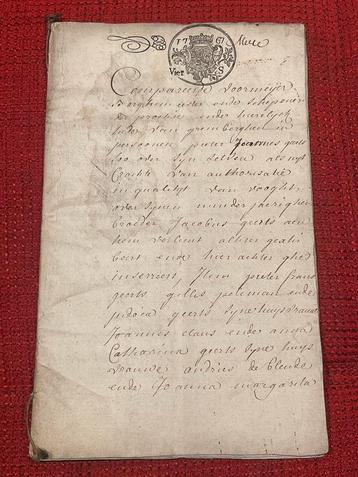 17 61
Vier S
Compareerde voor meijer
Borghemeester ende schepenen
der prostije ende heerelijck
hede van grimberghen in
persoonen peeter Joannes geerts
soo over syn selven als uyt
Crachte van authorisatie
in qualityt van vooght
over synen minder jaerighen
broeder Jacobus geerts aen
hem verleent alhier geatri
beert ende hier achter ghe
insereert, Item peeter frans
geerts, gillis peleman ende
judoca geerts syne huysvrauwe
Joannes claus ende anna
Catharina geerts syne huys
vrauwe andries de Clercke
ende Joanna margarita